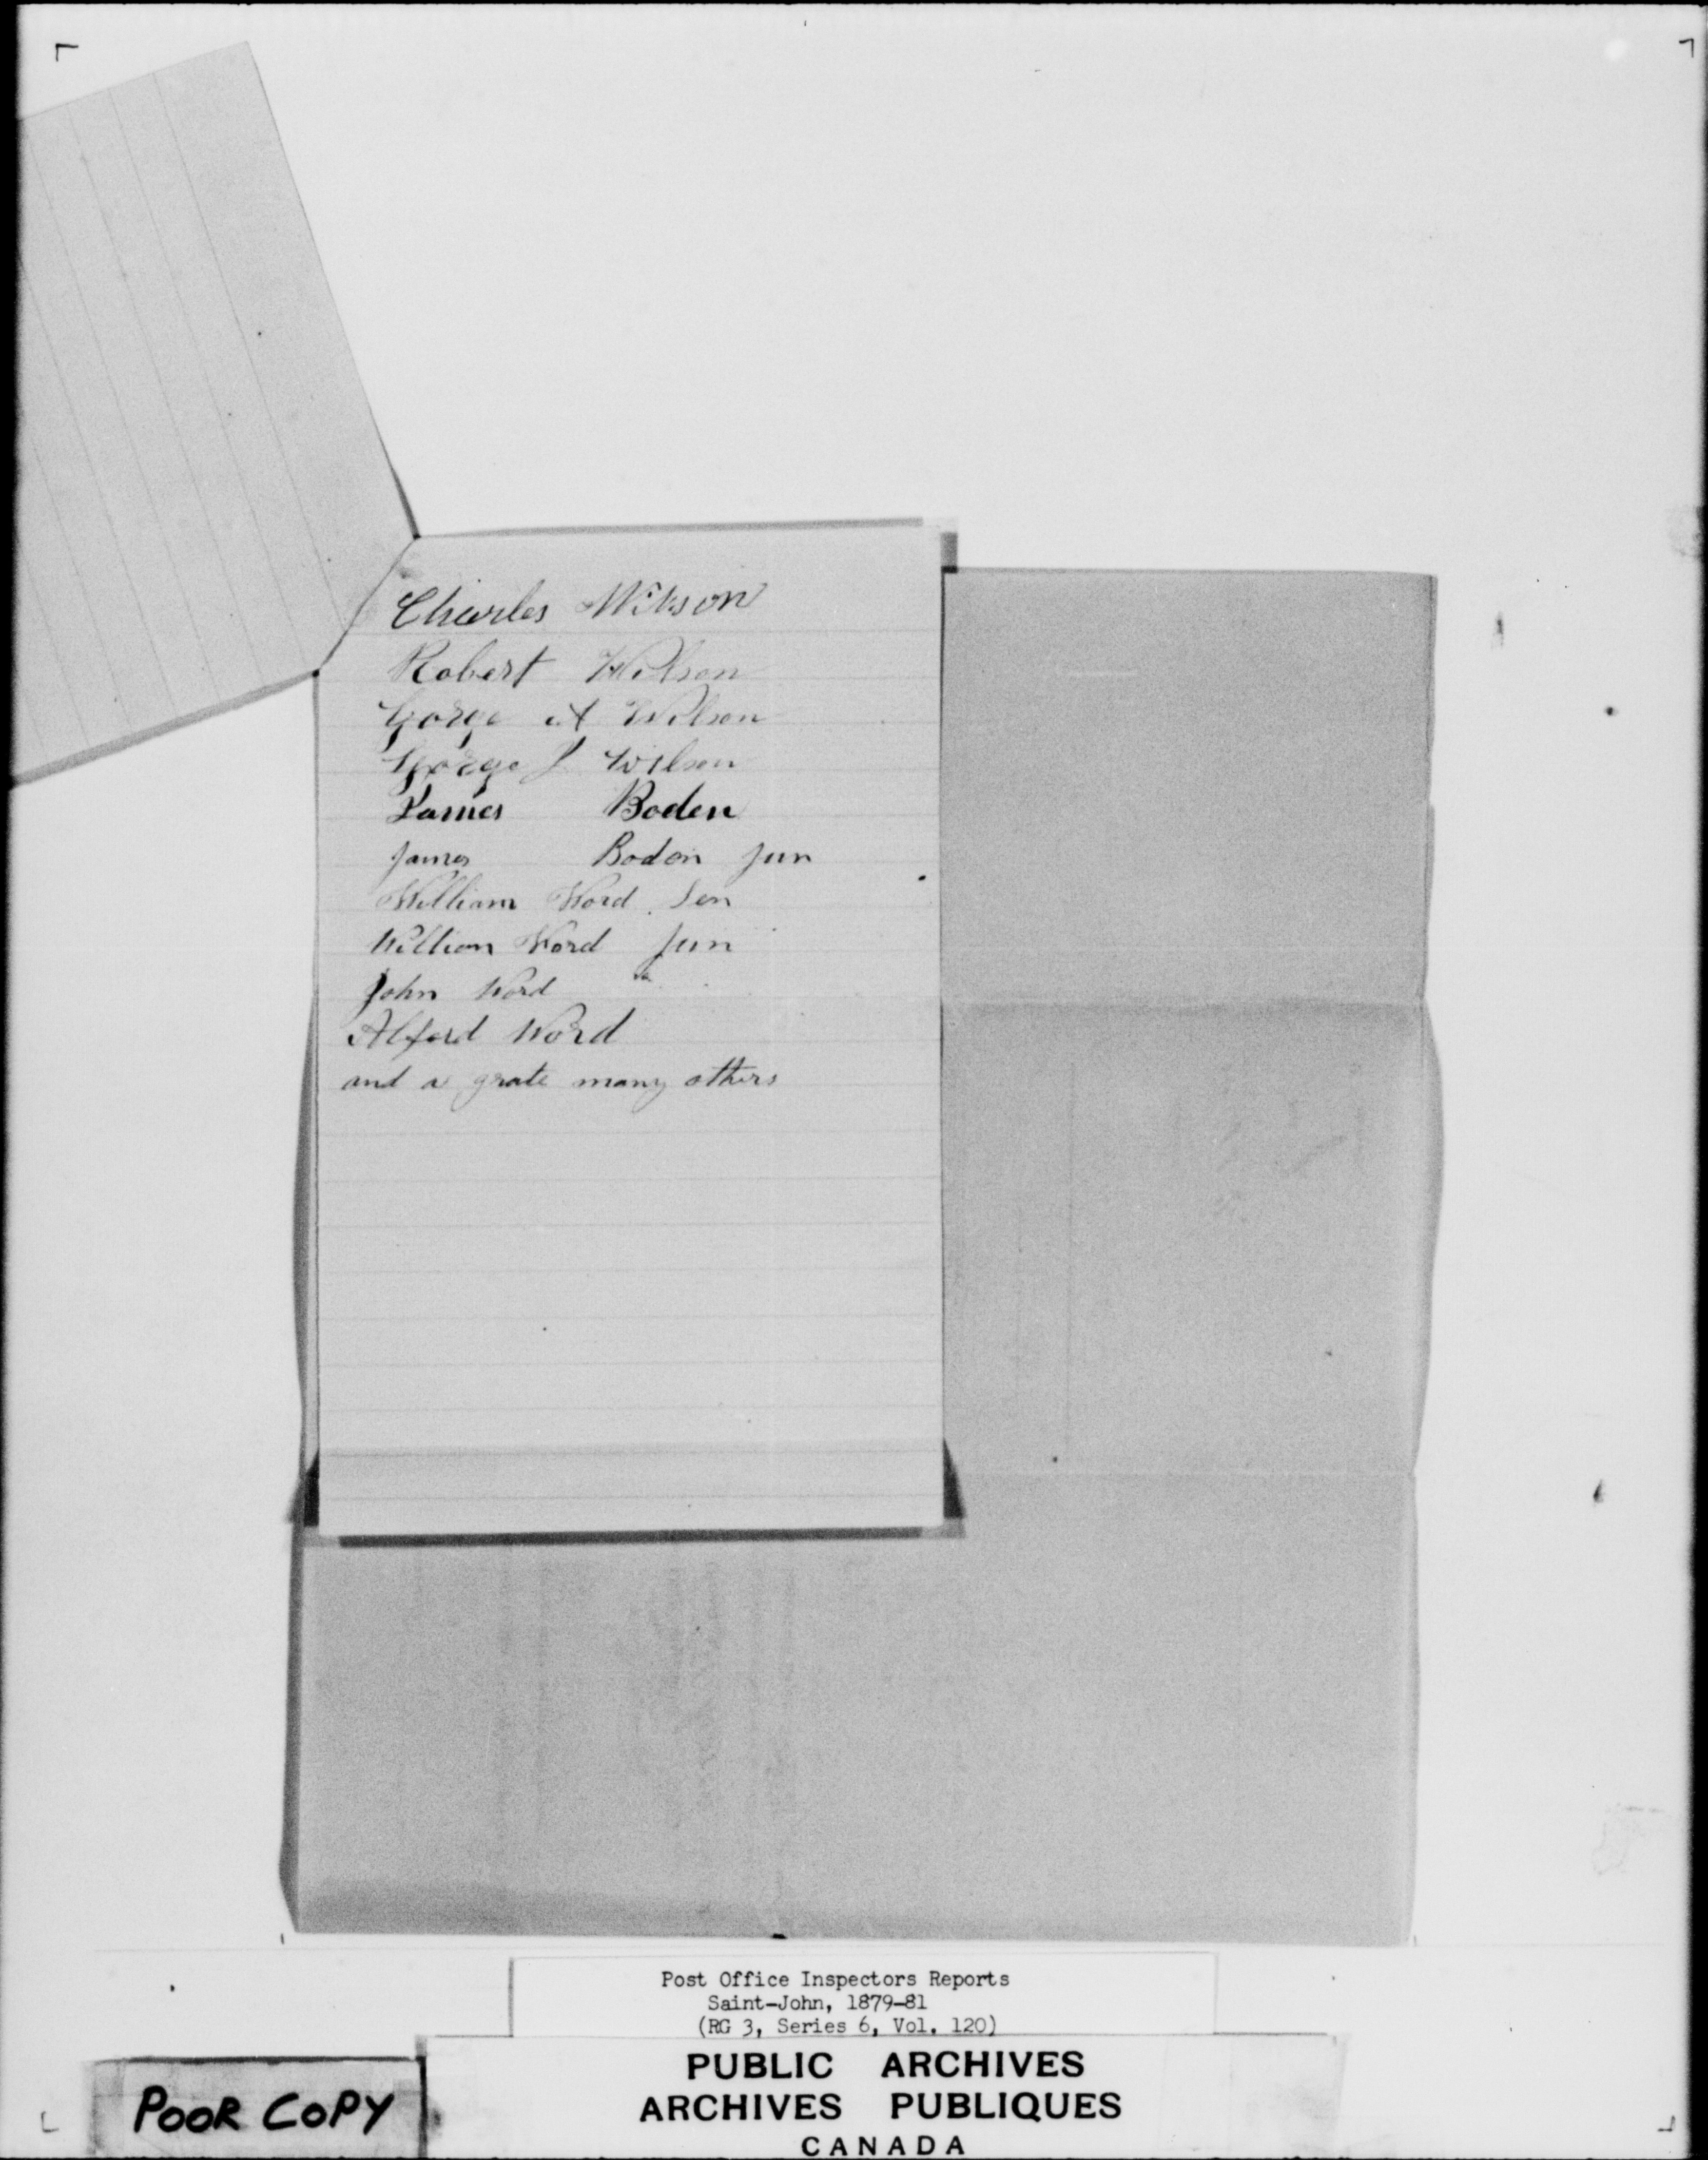 Charles Wilson
Robert Wilson
Gorge A Wilson
Gorge J Wilson
James Boden
James Boden Jun
William Word Sen
William Word Jun
John Word
Alford Word
and a grate many others
Post Office Inspectors Reports
Saint-John, 1879-81
(RG 3, Series 6, Vol. 120)
PUBLIC ARCHIVES
ARCHIVES PUBLIQUES
CANADA
POOR COPY